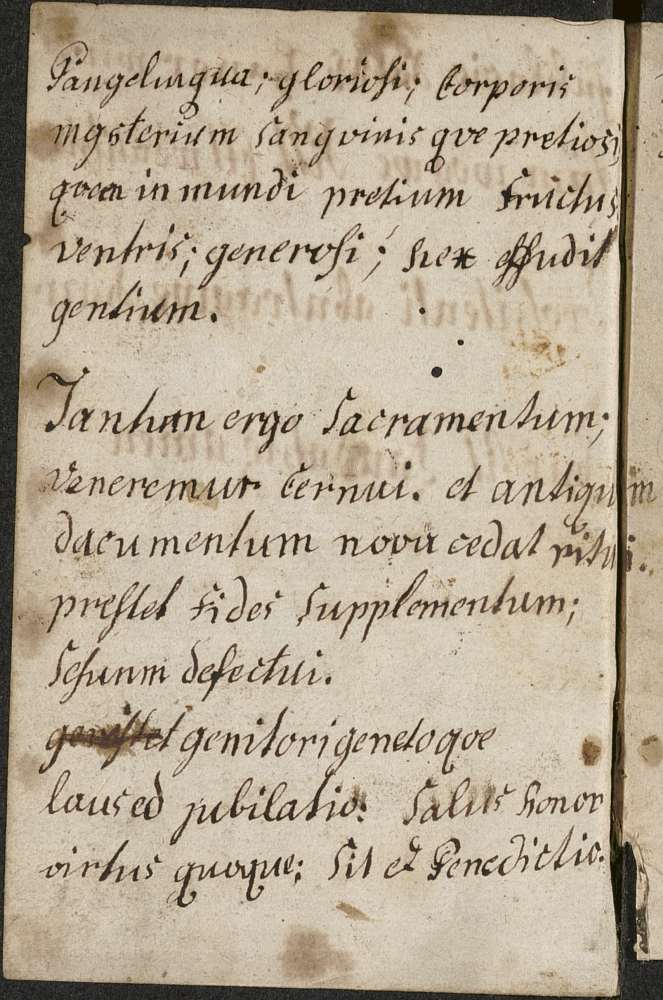 Pangelingua; gloriosi; Corporis
mysterium sangvinis qve pretiosi
qvem in mundi pretium fructus
ventris; generosi; Rex effudit
gentium.
Tantum ergo Sacramentum;
veneremur Cernui. et antiquum
dacumentum novu cedat ritui.
prestet fides supplementum;
sesuum defectui.
genitori genetoqve
laus ed jubilatio: Salus honor
virtus quoque; Sit et Benedictio.